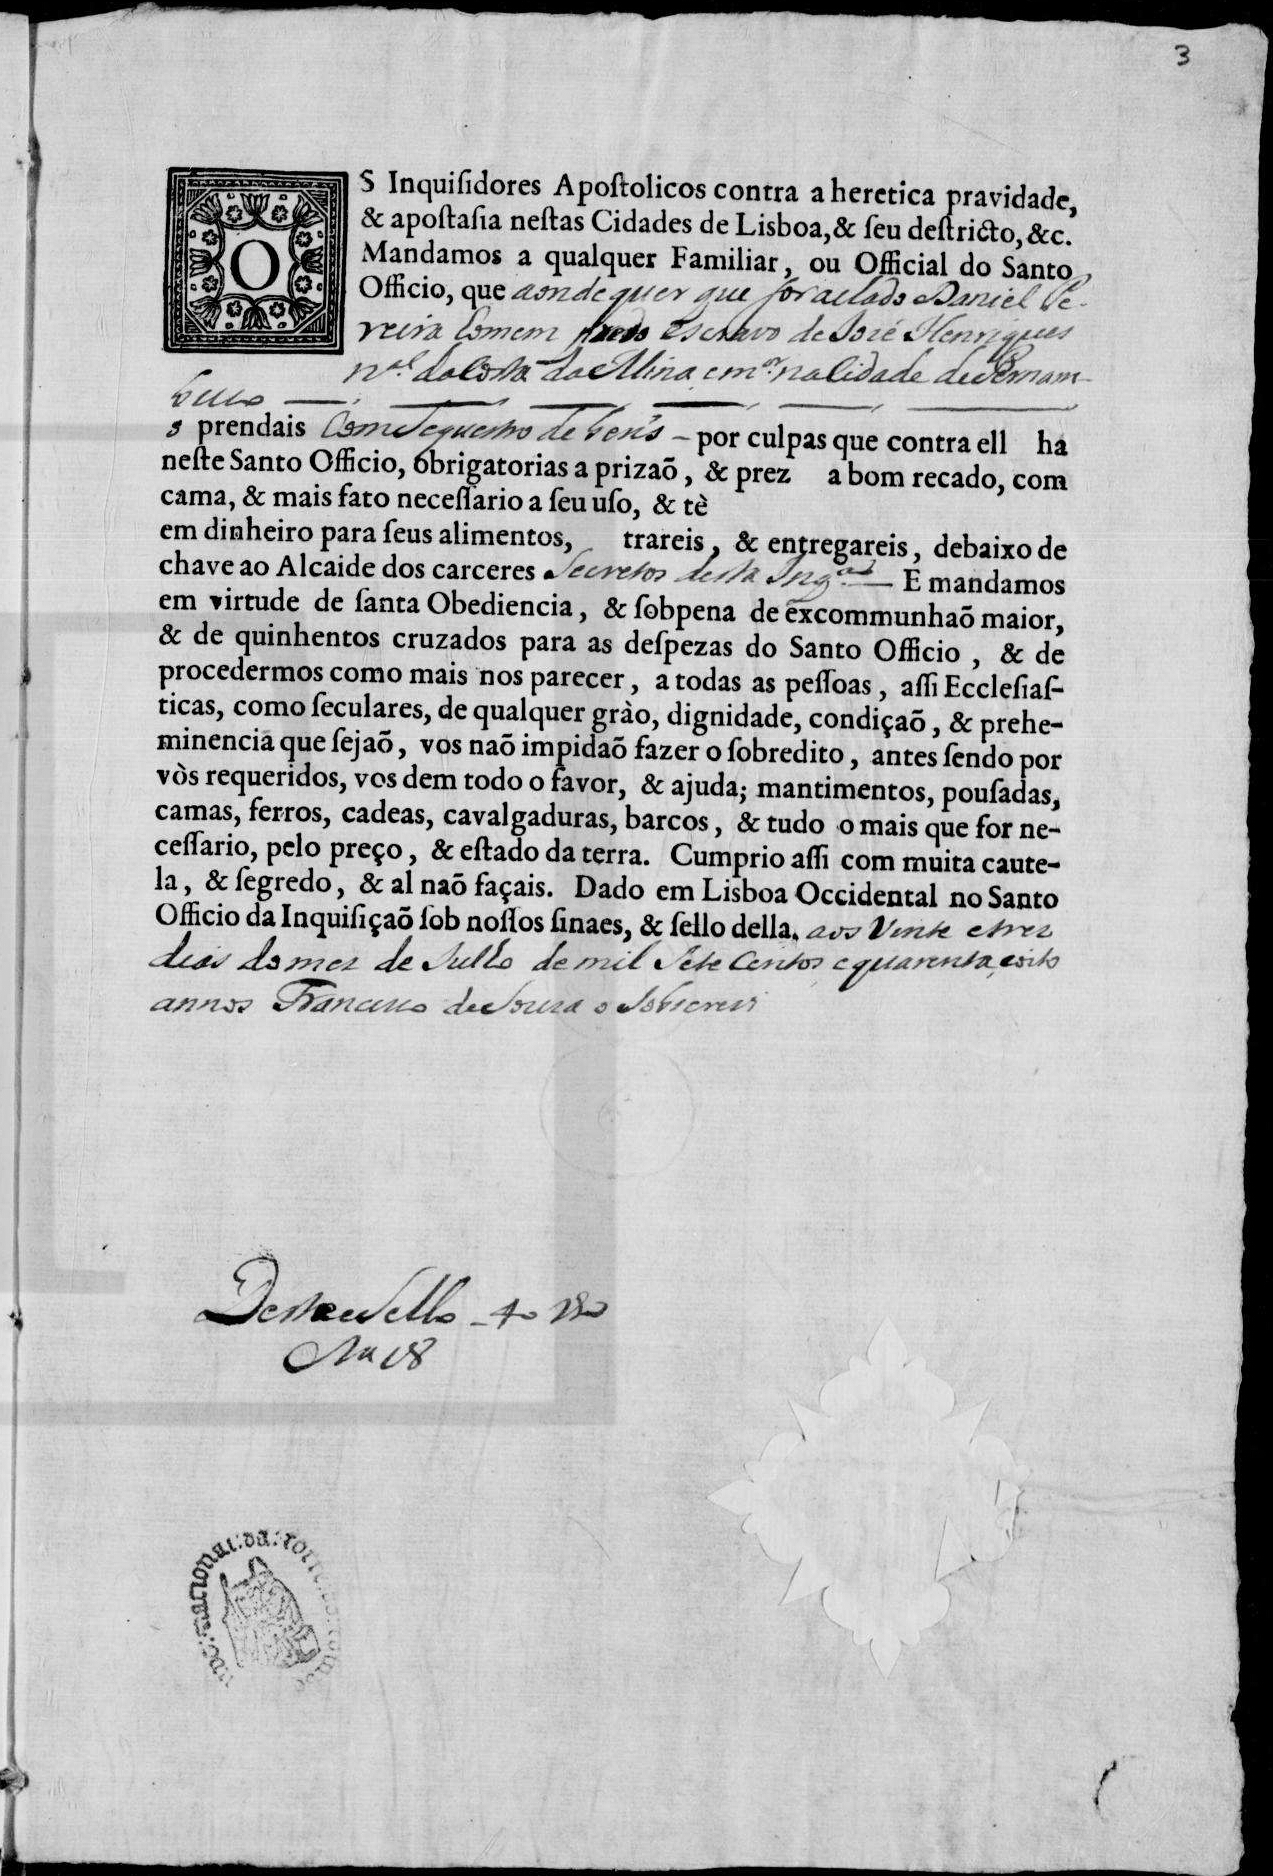 3
OS Inquiſidores Apoſtolicos contra a heretica pravidade,
& apoſtaſia neſtas Cidades de Lisboa, & ſeu deſtricto, &c.
Mandamos a qualquer Familiar, ou Official do Santo
Officio, que aonde quer que for achado Daniel Pe-
reira homem preto escravo de José Henriques
n.al da Costa da Mina, e m.or na Cidade de Pernam-
buco
o prendais Com Sequestro de bens – por culpas que contra ell ha
neſte Santo Officio, obrigatorias a prizaõ, & prez a bom recado, com
cama, & mais fato neceſſario a ſeu uſo, & tè
em dinheiro para ſeus alimentos, trareis, & entregareis, debaixo de
chave ao Alcaide dos carceres Secretos desta Inq.am — E mandamos
em virtude de ſanta Obediencia, & ſobpena de excommunhaõ maior,
& de quinhentos cruzados para as deſpezas do Santo Officio, & de
procedermos como mais nos parecer, a todas as peſſoas, aſſi Eccleſiaſ-
ticas, como ſeculares, de qualquer grào, dignidade, condiçaõ, & prehe-
minencia que ſejaõ, vos naõ impidaõ fazer o ſobredito, antes ſendo por
vòs requeridos, vos dem todo o favor, & ajuda; mantimentos, pouſadas,
camas, ferros, cadeas, cavalgaduras, barcos, & tudo o mais que for ne-
ceſſario, pelo preço, & eſtado da terra. Cumprio aſſi com muita caute-
la, & ſegredo, & al naõ façais. Dado em Lisboa Occidental no Santo
Officio da Inquiſiçaõ ſob noſſos ſinaes, & ſello della. aos Vinte e tres
dias do mez de Julho de mil Sete Centos e quarenta, e oito
annos Francisco de Souza o Sobscrevi
Deste e Sello